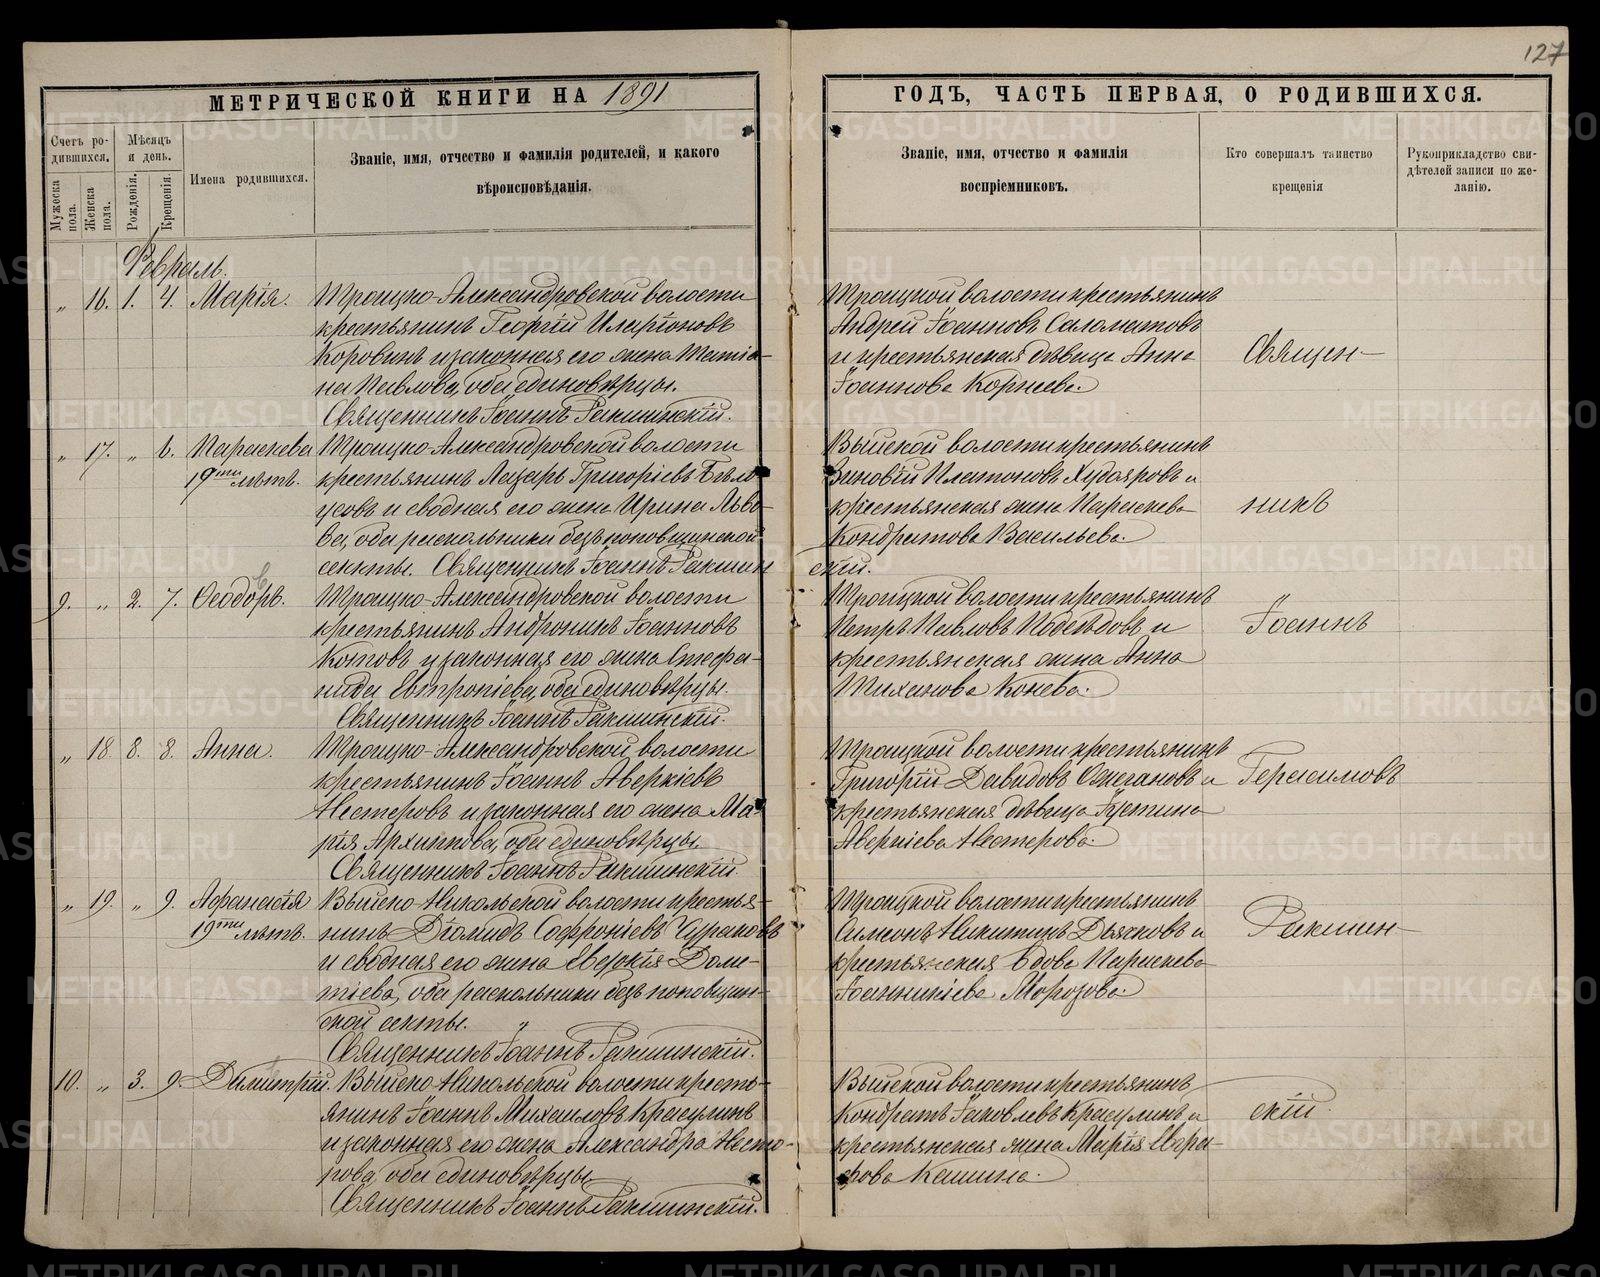 127
МЕТРИЧЕСКОЙ КНИГИ НА 1891
ГОДЪ, ЧАСТЬ ПЕРВАЯ, О РОДИВШИХСЯ.
Счетъ ро-
дившихся.
Мужеска
пола.
Женска
пола.
Мѣсяцъ
и день.
Рожденія.
Крещенія.
Имена родившихся.
Званіе, имя, отчество и фамилія родителей, и какого
вѣроисповѣданія.
Званіе, имя, отчество и фамилія
воспріемниковъ.
Кто совершалъ таинство
крещенія
Рукоприкладство сви-
дѣтелей записи по же-
ланію.
Февраль.
„ 16. 1. 4. Марія.
Троицко-Александровской волости
крестьянинъ Георгій Иларіоновъ
Коровинъ и законная его жена Татіа-
на Павлова, оба единовѣрцы.
Священникъ Іоаннъ Ракшинскій.
Троицкой волости крестьянинъ
Андрей Іоанновъ Саломатовъ
и крестьянская дѣвица Анна
Іоаннова Корнева.
Священ-
„ 17. „ 6. Параскева
19ти лѣтъ.
Троицко-Александровской волости
крестьянинъ Лазарь Григоріевъ Бѣло-
усовъ и сводная его жена Ирина Льво-
ва, оба раскольники безъ поповщинской
секты. Священникъ Іоаннъ Ракшин
скій.
Выйской волости крестьянинъ
Зиновій Платоновъ Худояровъ и
крестьянская жена Параскева
Кондратова Васильева.
никъ
9. „ 2. 7. Ѳеодоръ.
Троицко-Александровской волости
крестьянинъ Андроникъ Іоанновъ
Котовъ и законная его жена Стефа-
нида Евтропіева, оба единовѣрцы.
Священникъ Іоаннъ Ракшинскій.
Троицкой волости крестьянинъ
Петръ Павловъ Подсѣдовъ и
крестьянская жена Анна
Тиханова Конева.
Іоаннъ
„ 18. 8. 8. Анна.
Троицко-Александровской волости
крестьянинъ Іоаннъ Аверкіевъ
Нестеровъ и законная его жена Ма-
рія Архиппова, оба единовѣрцы.
Священникъ Іоаннъ Ракшинскій.
Троицкой волости крестьянинъ
Григорій Давидовъ Ожегановъ и
крестьянская дѣвица Іустина
Аверкіева Нестерова.
Герасимовъ
„ 19. „ 9. Афанасія
19ти лѣтъ.
Выйско-Никольской волости крестья-
нинъ Діомидъ Софроніевъ Чураковъ
и сводная его жена Евдокія Доме-
тіева, оба раскольники безъ поповщин-
ской секты. „
Священникъ Іоаннъ Ракшинскій.
Троицкой волости крестьянинъ
Симеонъ Никитинъ Дьячковъ и
крестьянская вдова Параскева
Іоанникіева Морозова.
Ракшин-
10. „ 3. 9. Димитрій.
Выйско-Никольской волости кресть-
янинъ Іоаннъ Михаиловъ Красулинъ
и законная его жена Александра Несто-
рова, оба единовѣрцы.
Священникъ Іоаннъ Ракшинскій.
Выйской волости крестьянинъ
Кондратъ Іаковлевъ Красулинъ и
крестьянская жена Марія Евгра-
фова Кашина.
скій.
METRIKI.GASO-URAL.RU